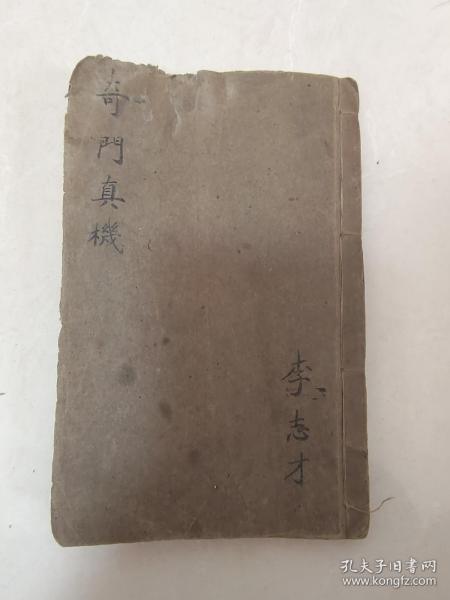 奇門真機
李志才
孔夫子旧书网
www.kongfz.com